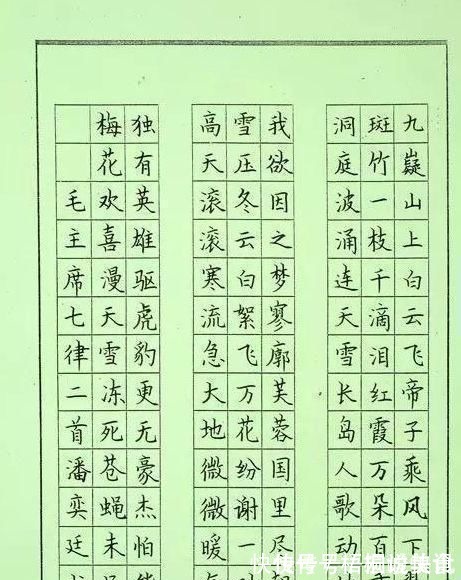 九嶷山上白云飞帝子乘风下
斑竹一枝千滴泪红霞万朵百
洞庭波涌连天雪长岛人歌动
我欲因之梦寥廓芙蓉国里尽
雪压冬云白絮飞万花纷谢一
高天滚滚寒流急大地微微暖
独有英雄驱虎豹更无豪杰怕
梅花欢喜漫天雪冻死苍蝇未
毛主席七律二首潘奕廷